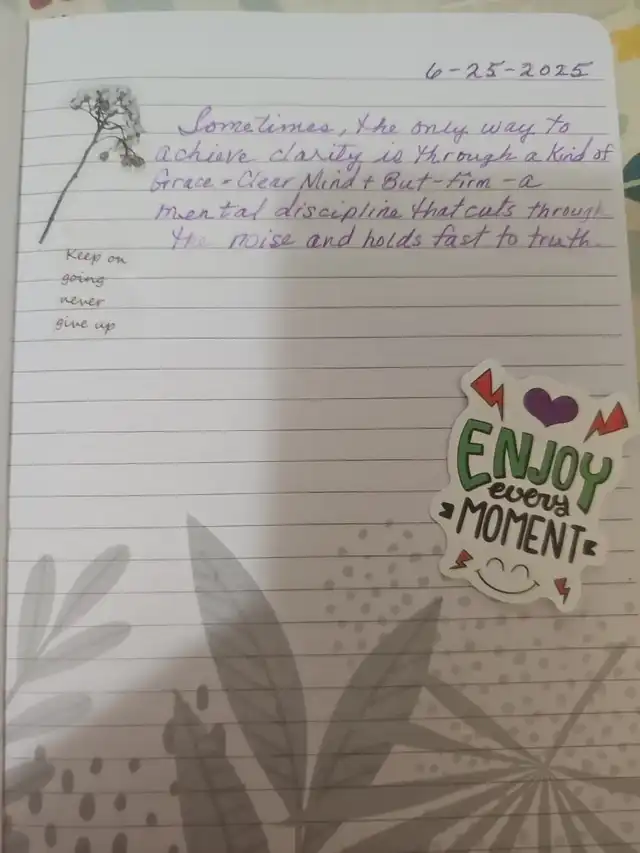 6-25-2025
Sometimes, the only way to
achieve clarity is through a kind of
Grace - Clear Mind + But-firm-a
mental discipline that cuts through
the noise and holds fast to truth.
Keep on
going
never
give up
ENJOY
every
MOMENT